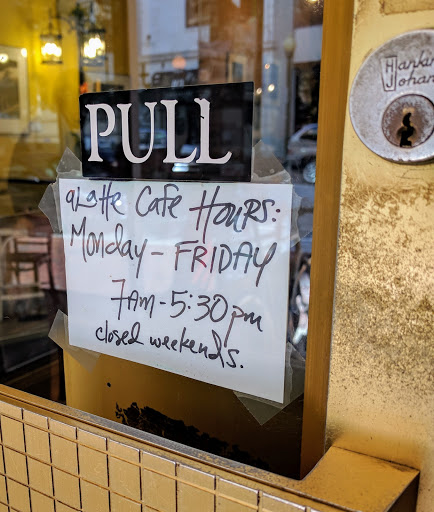 PULL
aLatte Cafe HOURS:
Monday - FRIDAY
7am - 5:30pm
closed weekends.